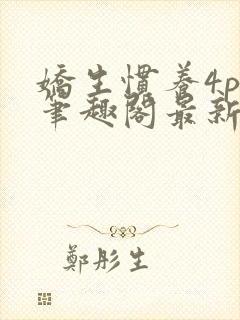 嬌生慣養4p
筆趣閣最新
鄭彤生